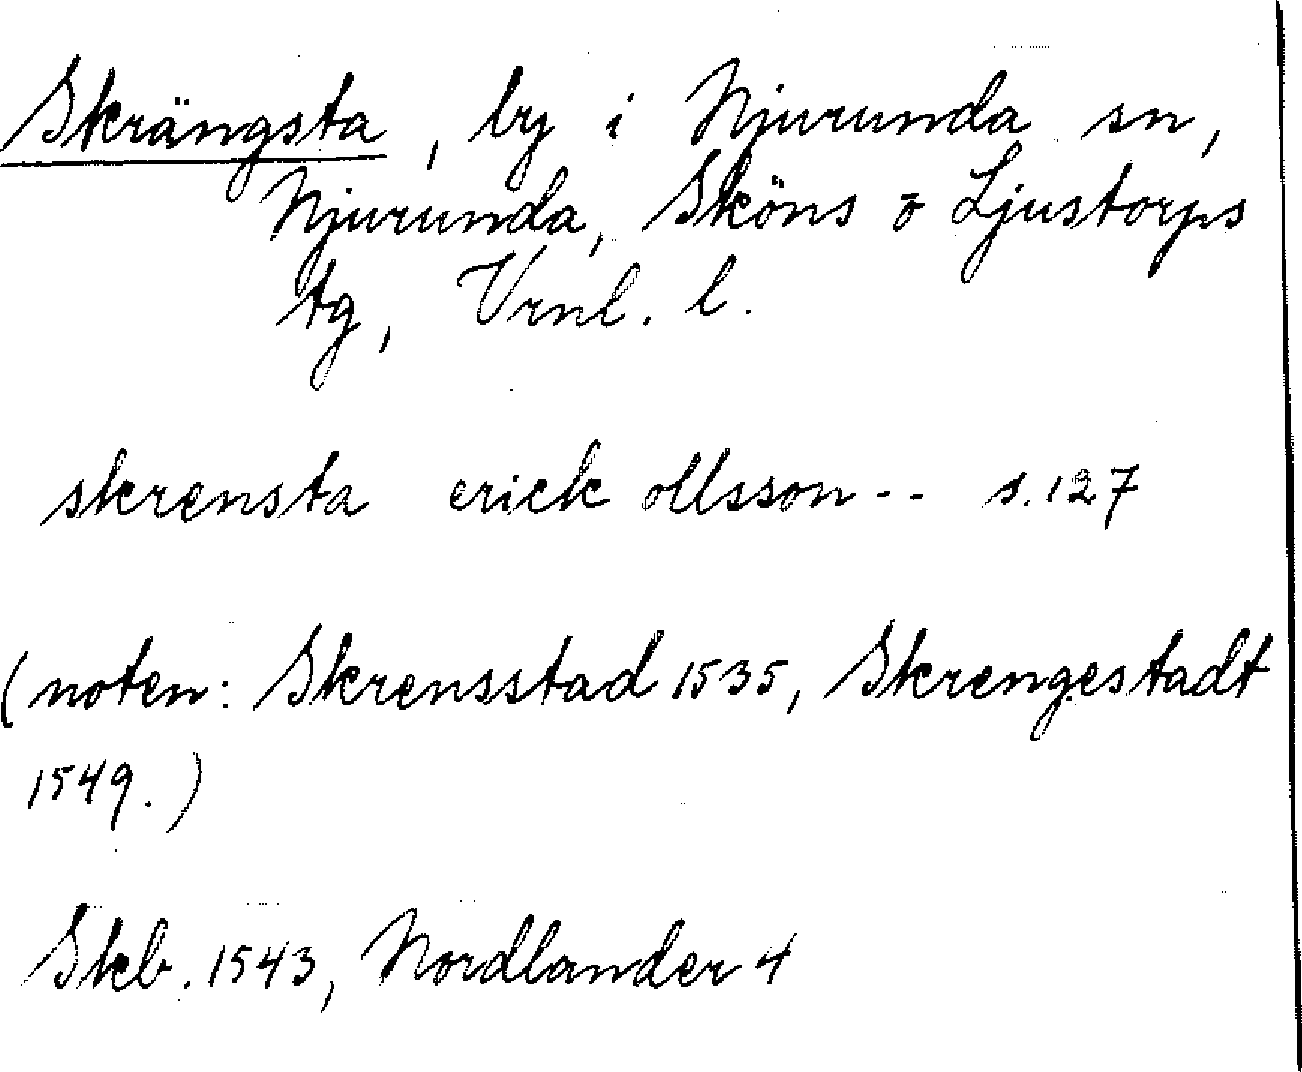 Skrängsta, by i Njurunda sn,
Njurunda, Sköns o Ljustorps
tg, Vrnl. l.
skrensta erick ollsson -- s. 127
(noten: Skrensstad 1535, Skrengestadt
1549.)
Skb. 1543, Nordlander 4